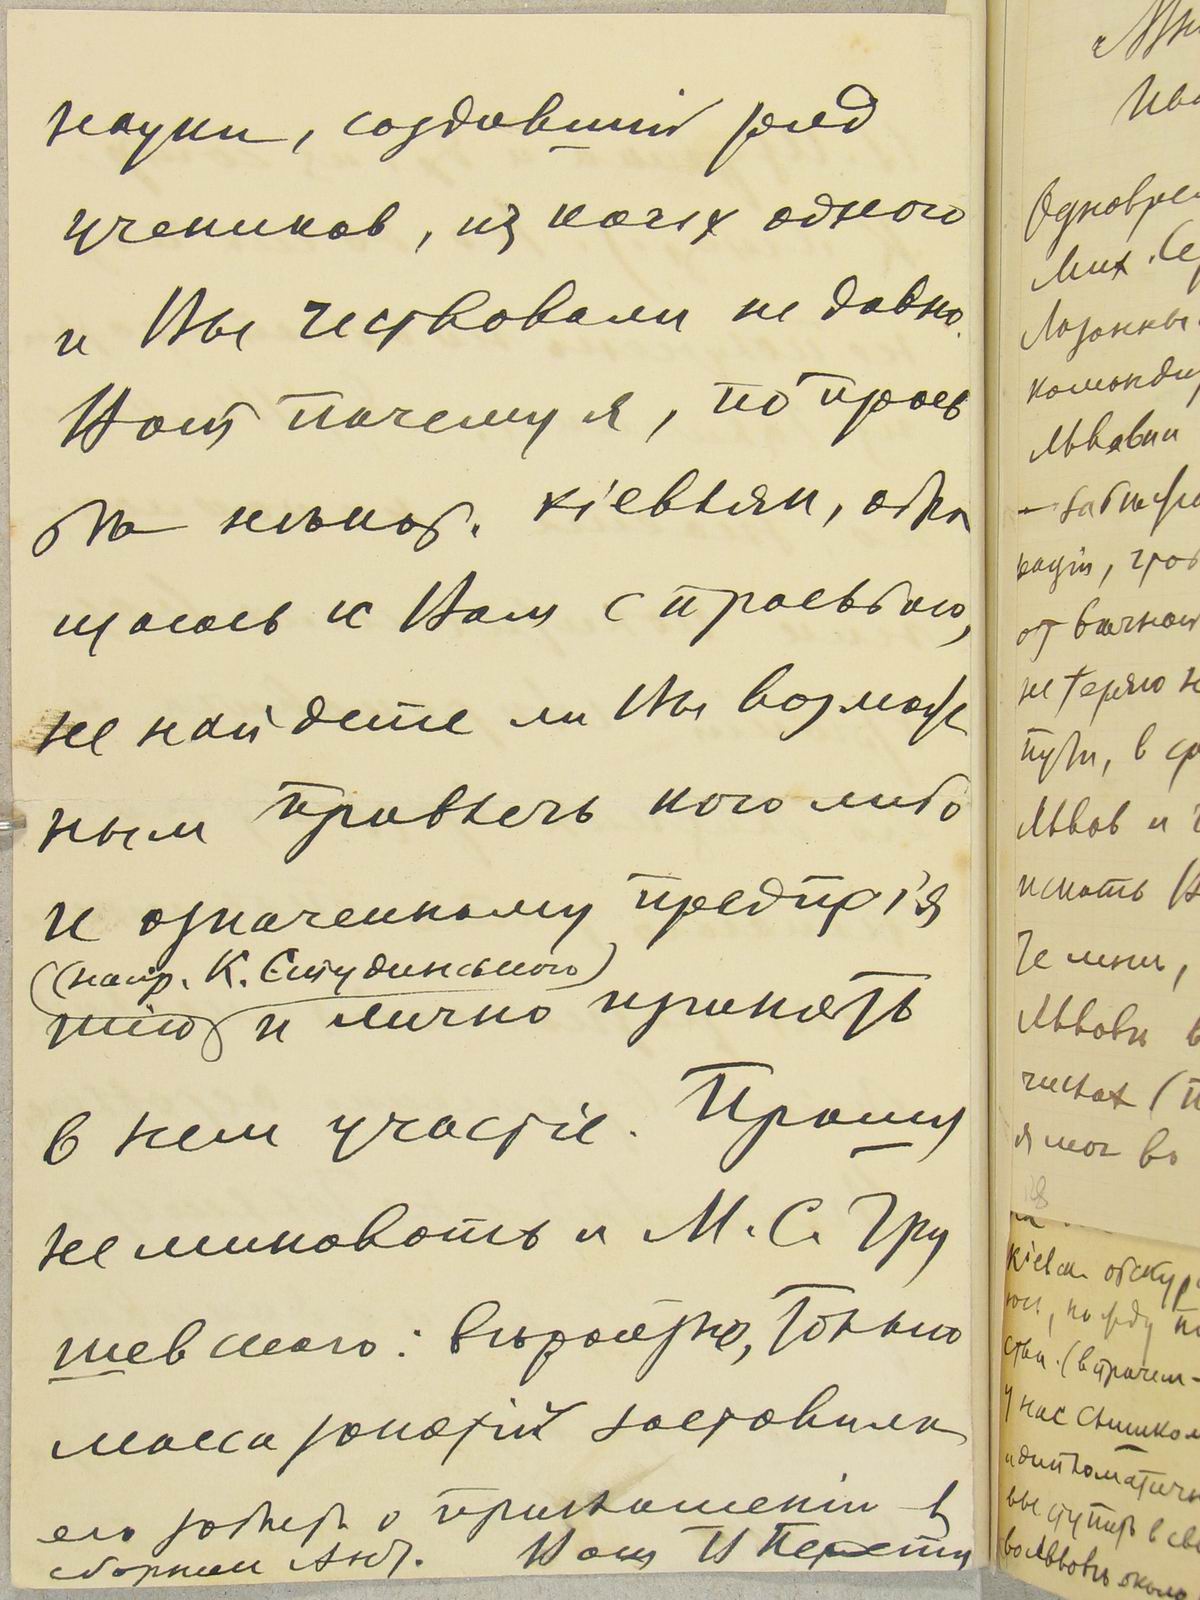 науки, создавшій ряд
учеников, из коих одного
и Вы чествовали не давно.
Вот почему я, по прось
бѣ нѣкот. кіевлян, обра
щаюсь к Вам с просьбою,
не найдете ли Вы возмож
ным привлечь кого либо
к означенному предпрія
(напр. К. Студинського)
тію и лично принять
в нем участіе. Прошу
не миновать и М. С. Гру
шевского: вѣроятно, только
масса занятій заставила
его забыть о приглашеніи в
сборник Ант. Ваш В Перетц
Одновре
Мих. Се
команди
Львови
рацій,
от
не теряю
пути, в ср
Львов и
искать
Львовѣ в
числах (
я мог во
кіевск. обскур
у нас слишком
и дипломатичн
выступить в
во Львовѣ около